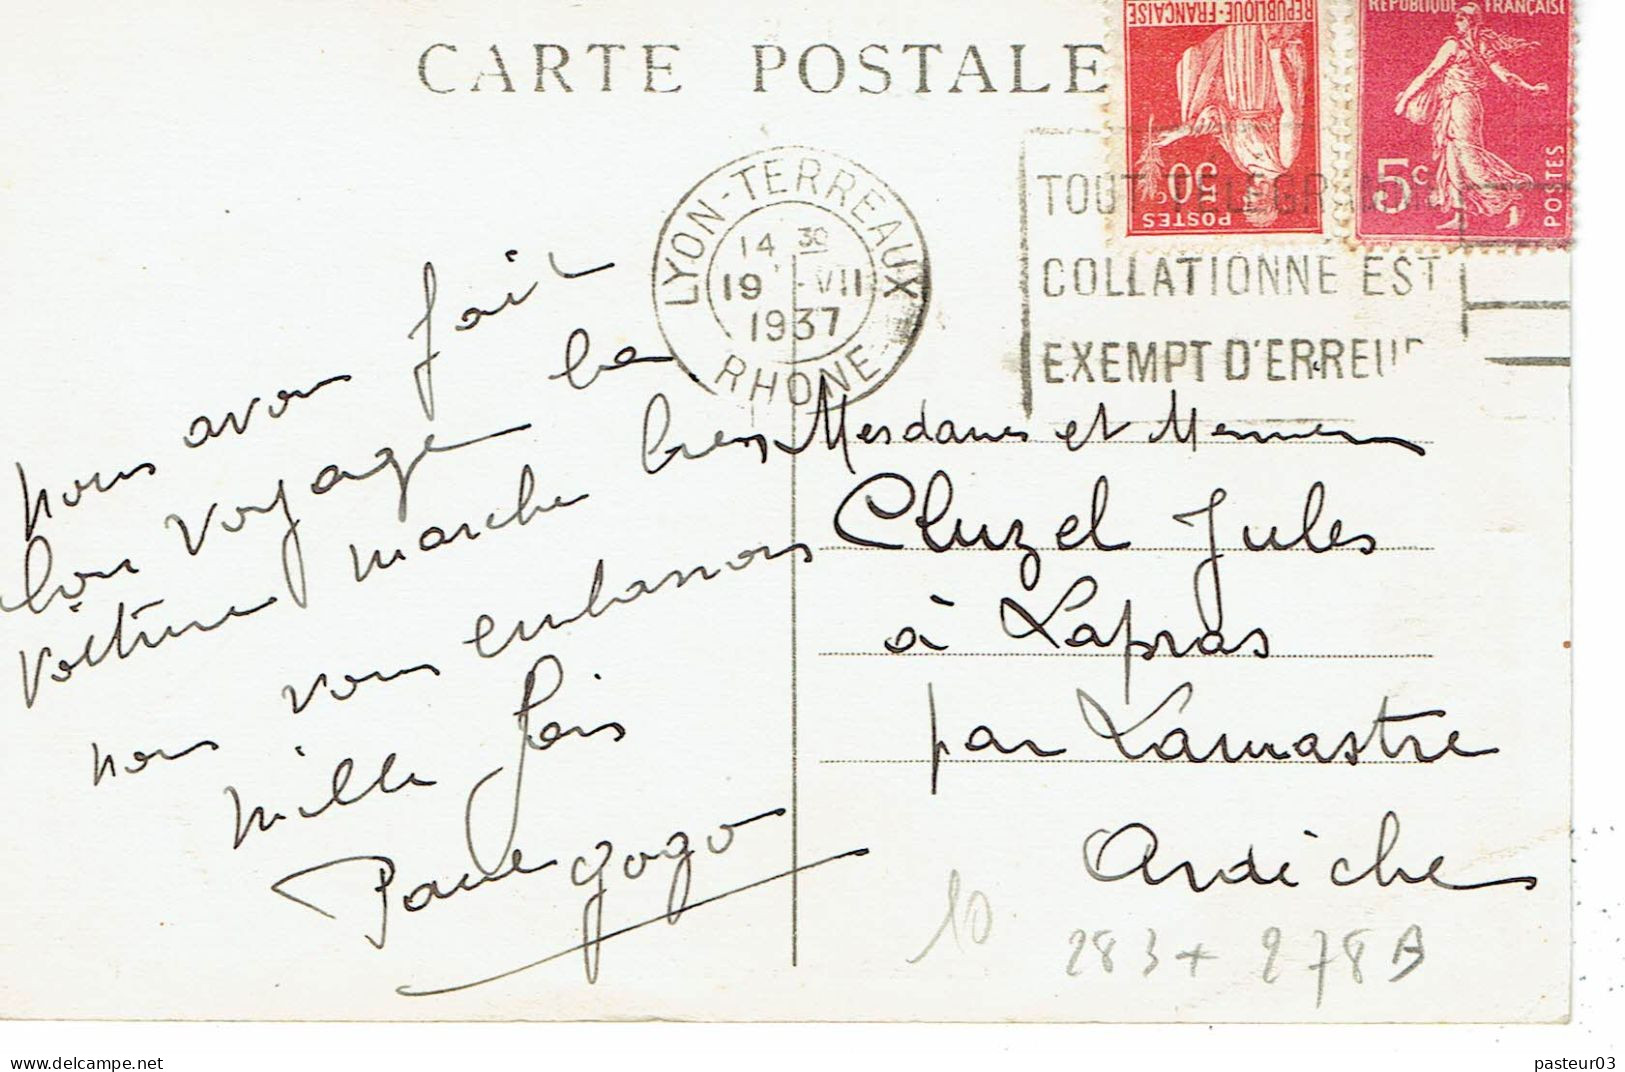 CARTE POSTALE
REPUBLIQUE-FRANÇAISE
50c
POSTES
REPUBLIQUE FRANÇAISE
5c
POSTES
LYON-TERREAUX
14 30
19 -VII
1937
RHONE
TOUT TELEGRAMME
COLLATIONNE EST
EXEMPT D'ERREUR
nous avons fait
bon voyage la
voiture marche bien
nous vous embrassons
mille fois
gogo
Mesdames et Messieurs
Cluzel Jules
à Lapras
par Lamastre
Ardèche
10
283 + 278B
www.delcampe.net
pasteur03